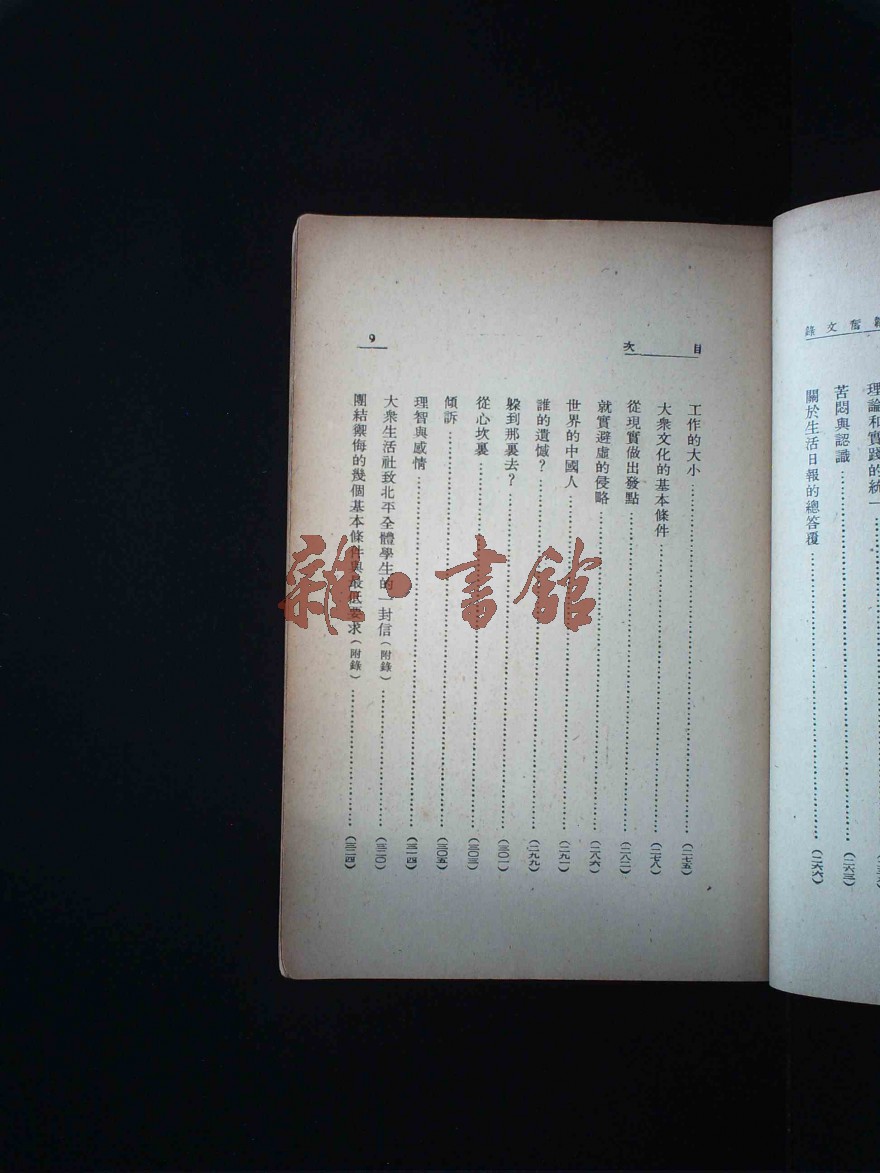 韜奮文錄
理論和實踐的統一
苦悶與認識……(二六三)
關於生活日報的總答覆……(二六六)
目次
9
工作的大小……(二七五)
大衆文化的基本條件……(二七八)
從現實做出發點……(二八二)
就實避虛的侵略……(二八六)
世界的中國人……(二九一)
誰的遺憾？……(二九九)
躱到那裏去？……(三〇一)
從心坎裏……(三〇三)
傾訴……(三〇五)
理智與感情……(三一四)
大衆生活社致北平全體學生的一封信(附錄)……(三二〇)
團結禦侮的幾個基本條件與最低要求(附錄)……(三二四)
雜·書館